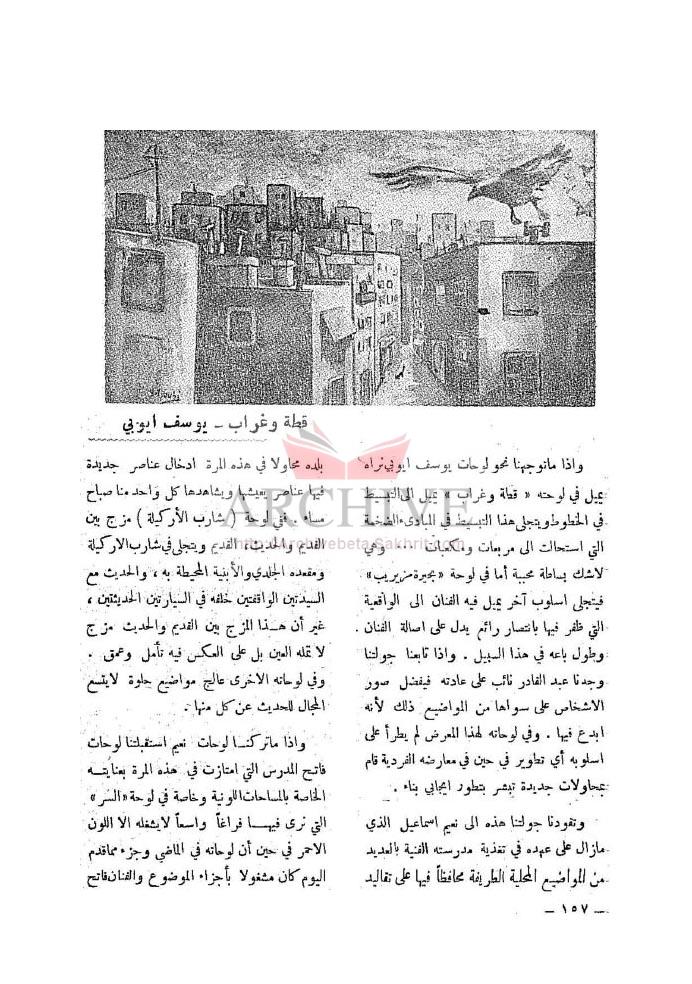 قطة وغراب ـ يوسف ايوبي
واذا ماتوجهنا نحو لوحات يوسف ايوبي نراه
يميل في لوحته « قطة وغراب » يميل الى التبسيط
في الخطوط ويتجلى هذا التبسيط في المباديء الضخمة
التي استحالت الى مربعات ومكعبات ... وهي
لاشك بساطة محببة أما في لوحة « بحيرة مزيريب »
فيتجلى اسلوب آخر يميل فيه الفنان الى الواقعية
التي ظفر فيها بانتصار رائع يدل على اصالة الفنان .
وطول باعه في هذا السبيل . واذا تابعنا جولتنا
وجدنا عبد القادر نائب على عادته فيفضل صور
الاشخاص على سواها من المواضيع ذلك لأنه
ابدع فيها . وفي لوحاته لهذا المعرض لم يطرأ على
اسلوبه أي تطوير في حين في معارضه الفردية قام
بمحاولات جديدة تبشر بتطور ايجابي بناء .
وتقودنا جولتنا هذه الى نعيم اسماعيل الذي
مازال على عهده في تغذية مدرسته الفنية بالعديد
من المواضيع المحلية الطريفة محافظاً فيها على تقاليد
بلده محاولا في هذه المرة ادخال عناصر جديدة
فيها عناصر يعيشها ويشاهدها كل واحد منا صباح
مساء . ففي لوحة ( شارب الأركيلة ) مزج بين
القديم والحديث، القديم ويتجلى في شارب الاركيلة
ومقعده الجلدي والأبنية المحيطة به ، والحديث مع
السيدتين الواقفتين خلفه في السيارتين الحديثتين ،
غير أن هذا المزج بين القديم والحديث مزج
لا تمله العين بل على العكس فيه تأمل وعمق .
وفي لوحاته الاخرى عالج مواضيع حلوة لايتسع
المجال للحديث عن كل منها .
واذا ماتركنا لوحات نعيم استقبلتنا لوحات
فاتح المدرس التي امتازت في هذه المرة بعنايته
الخاصة بالمساحات اللونية وخاصة في لوحة «السر»
التي نرى فيها فراغاً واسعاً لايشغله الا اللون
الاحمر في حين أن لوحاته في الماضي وجزء مما قدم
اليوم كان مشغولا بأجزاء الموضوع والفنان فاتح
ـ ١٥٧ ـ
ARCHIVE
http://Archivebeta.Sakhrit.com